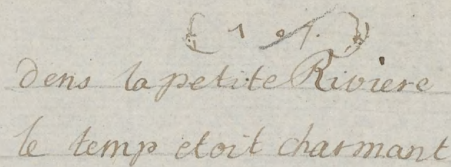 dens la petite Riviere
le temp etoit charmant